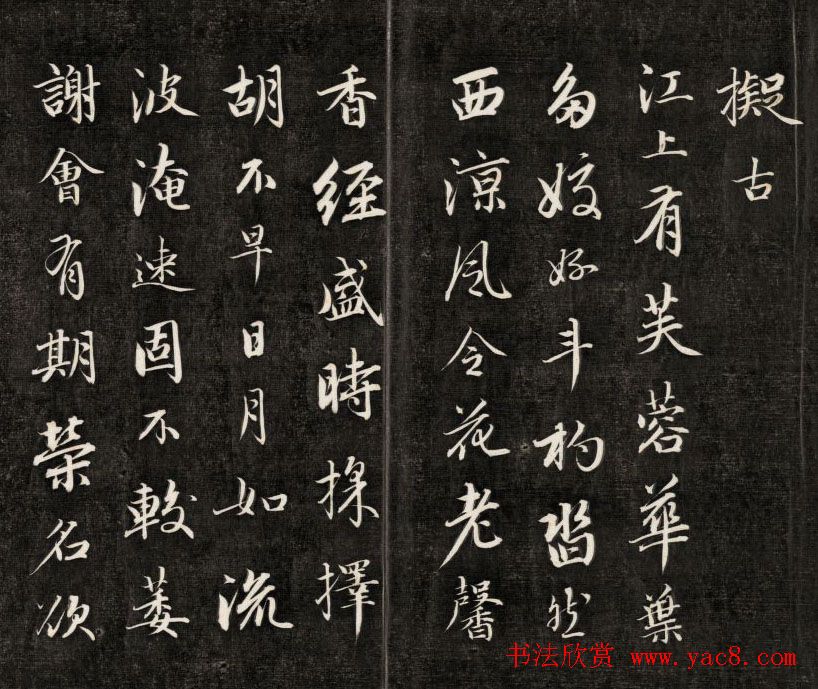 擬古
江上有芙蓉華葉
多姣好斗杓然
西涼風令花老馨
香經盛時採擇
胡不早日月如流
波淹速固不較萎
謝會有期榮名欲
书法欣赏 www.yac8.com